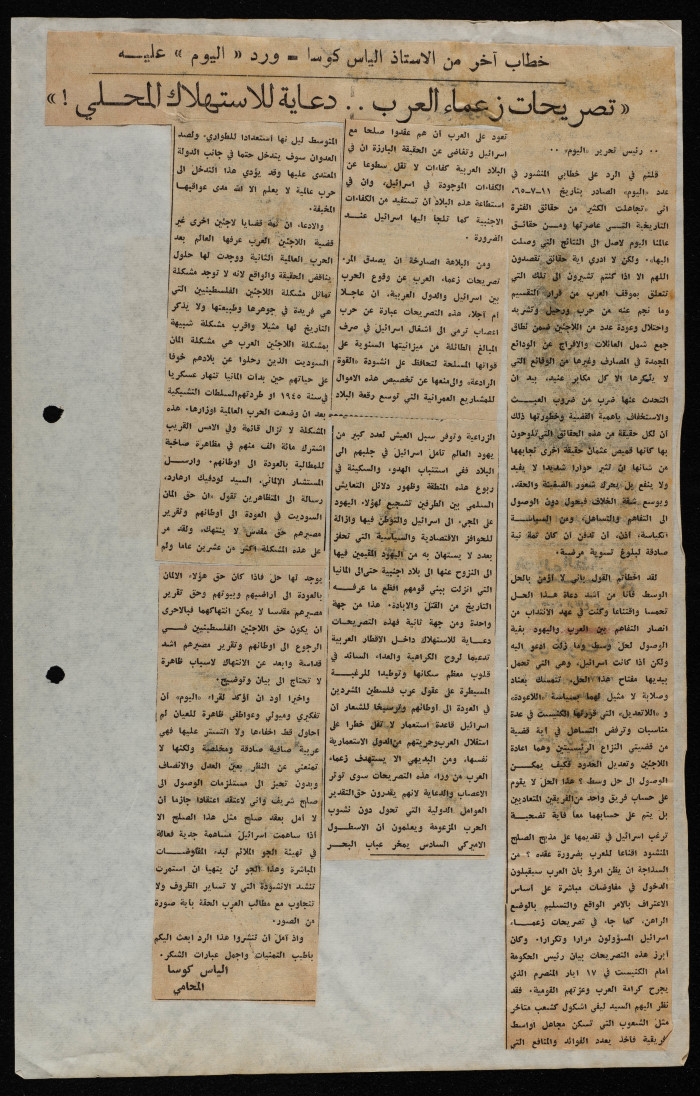 خطاب آخر من الاستاذ الياس كوسا - ورد « اليوم » عليه
« تصريحات زعماء العرب .. دعاية للاستهلاك المحلي ! »
.. رئيس تحرير «اليوم» ..
قلتم في الرد على خطابي المنشور في
عدد «اليوم» الصادر بتاريخ ١١-٧-٦٥،
اني «تجاهلت الكثير من حقائق الفترة
التاريخية التي عاصرتها ومن حقائق
عالمنا اليوم لاصل الى النتائج التي وصلت
اليها». ولكن لا ادري اية حقائق تقصدون
اللهم الا اذا كنتم تشيرون الى تلك التي
تتعلق بموقف العرب من قرار التقسيم
وما نجم عنه من حرب ورحيل وتشريد
واحتلال وعودة عدد من اللاجئين ضمن نطاق
جمع شمل العائلات والافراج عن الودائع
المجمدة في المصارف وغيرها من الوقائع التي
لا ينكرها الا كل مكابر عنيد، بيد ان
التحدث عنها ضرب من ضروب العبث
والاستخفاف باهمية القضية وخطورتها ذلك
ان لكل حقيقة من هذه الحقائق التي تلوحون
بها كانها قميص عثمان حقيقة اخرى تجابهها
من شانها ان تثير حوارا شديدا لا يفيد
ولا ينفع بل يحرك شعور الضغينة والحقد،
ويوسع شقة الخلاف فيحول دون الوصول
الى التفاهم والتساهل، ومن السياسة
انكياسة، اذن، ان تدفن ان كان ثمة نية
صادقة لبلوغ تسوية مرضية.
لقد اخطاتم القول باني لا اؤمن بالحل
الوسط فانا من اشد دعاة هذا الحل
تحمسا واقتناعا وكنت في عهد الانتداب من
انصار التفاهم بين العرب واليهود بغية
الوصول لحل وسط وما زلت ادعو اليه
ولكن اذا كانت اسرائيل، وهي التي تحمل
بيدها مفتاح هذا الحل، تتمسك بعناد
وصلابة لا مثيل لهما بسياسة «اللاعودة»
و «اللاتعديل» التي قررتها الكنيست في عدة
مناسبات وترفض التساهل في اية قضية
من قضيتي النزاع الرئيسيتين وهما اعادة
اللاجئين وتعديل الحدود فكيف يمكن
الوصول الى حل وسط ؟ هذا الحل لا يقوم
على حساب فريق واحد من الفريقين المتعاديين
بل يتم على حسابهما معا فاية تضحية
ترغب اسرائيل في تقديمها على مذبح الصلح
المنشود اقناعا للعرب بضرورة عقده ؟ من
السذاجة ان يظن امرؤ بان العرب سيقبلون
الدخول في مفاوضات مباشرة على اساس
الاعتراف بالامر الواقع والتسليم بالوضع
الراهن، كما جاء في تصريحات زعماء
اسرائيل المسؤولون مرارا وتكرارا. وكان
ابرز هذه التصريحات بيان رئيس الحكومة
امام الكنيست في ١٧ ايار المنصرم الذي
يجرح كرامة العرب وعزتهم القومية. فقد
نظر اليهم السيد ليفي اشكول كشعب متاخر
مثل الشعوب التي تسكن مجاهل اواسط
فريقية فاخذ يعدد الفوائد والمنافع التي
تعود على العرب ان هم عقدوا صلحا مع
اسرائيل وتغاضى عن الحقيقة البارزة ان في
البلاد العربية كفاءات لا تقل سطوعا عن
الكفاءات الموجودة في اسرائيل، وان في
استطاعة هذه البلاد ان تستفيد من الكفاءات
الاجنبية كما تلجا اليها اسرائيل عند
الضرورة .
ومن البلاغة الصارخة ان يصدق المرء
تصريحات زعماء العرب عن وقوع الحرب
بين اسرائيل والدول العربية، ان عاجلا
ام آجلا، هذه التصريحات عبارة عن حرب
اعصاب ترمي الى اشغال اسرائيل في صرف
المبالغ الطائلة من ميزانيتها السنوية على
قواتها المسلحة لتحافظ على انشودة «القوة
الرادعة، والى منعها عن تخصيص هذه الاموال
للمشاريع العمرانية التي توسع رقعة البلاد
الزراعية وتوفر سبل العيش لعدد كبير من
يهود العالم تامل اسرائيل في جلبهم الى
البلاد ففي استتباب الهدوء والسكينة في
ربوع هذه المنطقة وظهور دلائل التعايش
السلمي بين الطرفين تشجيع لهؤلاء اليهود
على المجيء الى اسرائيل والتوطن فيها وازالة
للحوافز الاقتصادية والسياسية التي تحفز
بعدد لا يستهان به من اليهود المقيمين فيها
الى النزوح عنها الى بلاد اجنبية حتى الى المانيا
التي انزلت ببني قومهم افظع ما عرفه
التاريخ من القتل والابادة. هذا من جهة
واحدة ومن جهة ثانية فهذه التصريحات
دعاية للاستهلاك داخل الاقطار العربية
تدعيما لروح الكراهية والعداء السائد في
قلوب معظم سكانها وتوطيدا للرغبة
المسيطرة على عقول عرب فلسطين المشردين
في العودة الى اوطانهم وترسيخا للشعار ان
اسرائيل قاعدة استعمار لا تقل خطرا على
استقلال العرب وحريتهم من الدول الاستعمارية
نفسها، ومن البديهي الا يستهدف زعماء
العرب من وراء هذه التصريحات سوى توتر
الاعصاب والدعاية لانهم يقدرون حق التقدير
العوامل الدولية التي تحول دون نشوب
الحرب المزعومة ويعلمون ان الاسطول
الاميركي السادس يمخر عباب البحر
المتوسط ليل نها استعدادا للطوارىء ولصد
العدوان سوف يتدخل حتما في جانب الدولة
المعتدى عليها وقد يؤدي هذا التدخل الى
حرب عالمية لا يعلم الا الله مدى عواقبها
المخيفة.
والادعاء ان ثمة قضايا لاجئين اخرى غير
قضية اللاجئين العرب عرفها العالم بعد
الحرب العالمية الثانية ووجدت لها حلول
يناقض الحقيقة والواقع لانه لا توجد مشكلة
تماثل مشكلة اللاجئين الفلسطينيين التي
هي فريدة في جوهرها وطبيعتها ولا يذكر
التاريخ لها مثيلا واقرب مشكلة شبيهة
بمشكلة اللاجئين العرب هي مشكلة المان
السوديت الذين رحلوا عن بلادهم خوفا
على حياتهم حين بدات المانيا تنهار عسكريا
في سنة ١٩٤٥ او طردتهم السلطات التشيكية
بعد ان وضعت الحرب العالمية اوزارها، هذه
المشكلة لا تزال قائمة وفي الامس القريب
اشترك مائة الف منهم في مظاهرة صاخبة
للمطالبة بالعودة الى اوطانهم. وارسل
المستشار الالماني، السيد لودفيك ارهارد،
رسالة الى المتظاهرين تقول «ان حق المان
السوديت في العودة الى اوطانهم وتقرير
مصيرهم حق مقدس لا ينتهك، ولقد مر
على هذه المشكلة اكثر من عشرين عاما ولم
يوجد لها حل فاذا كان حق هؤلاء الالمان
بالعودة الى اراضيهم وبيوتهم وحق تقرير
مصيرهم مقدسا لا يمكن انتهاكهما فبالاحرى
ان يكون حق اللاجئين الفلسطينيين في
الرجوع الى اوطانهم وتقرير مصيرهم اشد
قداسة وابعد عن الانتهاك لاسباب ظاهرة
لا تحتاج الى بيان وتوضيح.
واخيرا اود ان اؤكد لقراء «اليوم» ان
تفكيري وميولي وعواطفي ظاهرة للعيان لم
احاول قط اخفاءها ولا التستر عليها فهي
عربية صافية صادقة ومخلصة ولكنها لا
تمنعني عن النظر بعين العدل والانصاف
وبدون تحيز الى مستلزمات الوصول الى
صلح شريف واني لاعتقد اعتقادا جازما ان
لا امل بعقد صلح مثل هذا الصلح الا
اذا ساهمت اسرائيل مساهمة جدية فعالة
في تهيئة الجو الملائم لبدء المفاوضات
المباشرة وهذا الجو لن يتهيا ان استمرت
تنشد الانشودة التي لا تساير الظروف ولا
تتجاوب مع مطالب العرب الحقة باية صورة
من الصور.
واذ آمل ان تنشروا هذا الرد ابعث اليكم
باطيب التمنيات واجمل عبارات الشكر.
الياس كوسا
المحامي